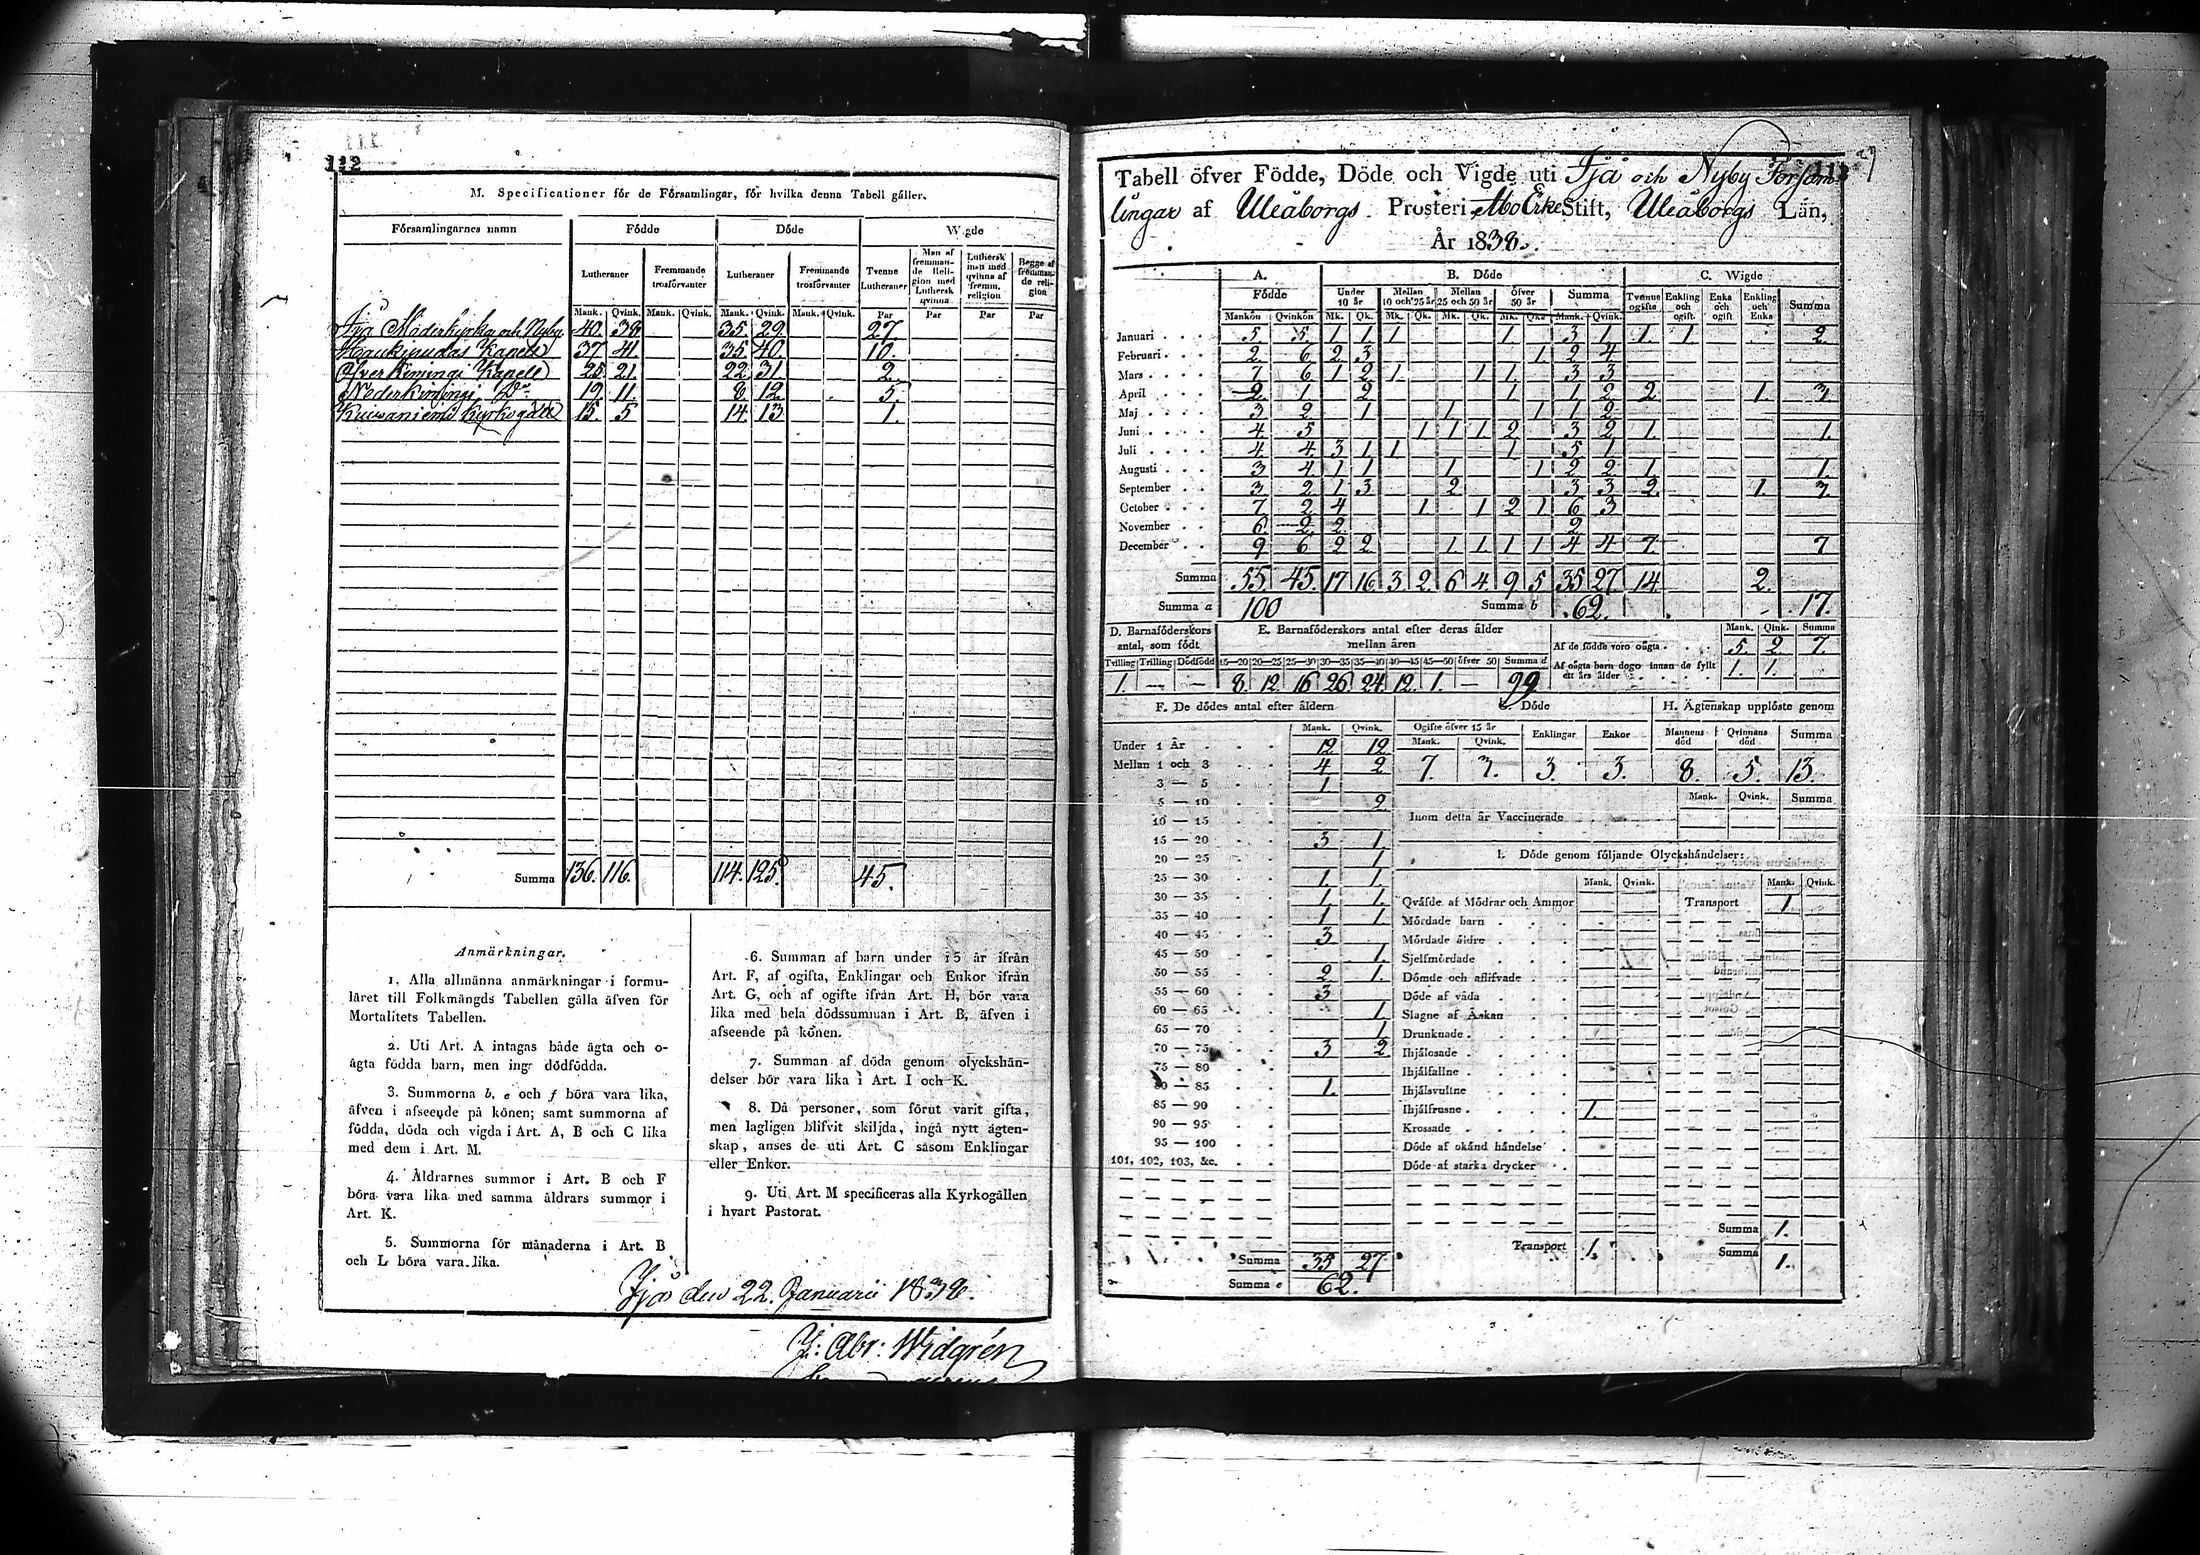 112
M. Specificationer för de Församlingar, för hvilka denna Tabell gäller.
Församlingarnes namn Födde Döde Wigde
Lutheraner Fremmande trosförvanter Lutheraner Fremmande trosförvanter Tvenne Lutheraner Man af fremmande Religion med Luthersk qvinna Luthersk man med qvinna af fremm. religion Begge af fremmande religion
Mank. Qvink. Mank. Qvink. Mank. Qvink. Mank. Qvink. Par Par Par Par
Ijå Moderkyrka och Nyby 40. 38 35 29. 27.
Haukipudas Kapell 37 41. 35. 40. 10.
Öfver Kimingi Kapell 25. 21. 22. 31. 2.
Neder Kimingi Do 19. 11. 8. 12. 5.
Kuivaniemi Kyrkogäll 15. 5. 14. 13. 1.
Summa 136. 116. 114. 125. 45.
Anmärkningar.
1. Alla allmänna anmärkningar i formu-
läret till Folkmängds Tabellen gälla äfven för
Mortalitets Tabellen.
2. Uti Art. A intagas både ägta och o-
ägta födda barn, men inga dödfödda.
3. Summorna b, e och f böra vara lika,
äfven i afseende på könen; samt summorna af
födda, döda och vigda i Art. A, B och C lika
med dem i Art. M.
4. Åldrarnes summor i Art. B och F
böra vara lika med samma åldrars summor i
Art. K.
5. Summorna för månaderna i Art. B
och L böra vara lika.
6. Summan af barn under 15 år ifrån
Art. F, af ogifta, Enklingar och Enkor ifrån
Art. G, och af ogifte ifrån Art. H, bör vara
lika med hela dödssumman i Art. B, äfven i
afseende på könen.
7. Summan af döda genom olyckshän-
delser bör vara lika i Art. I och K.
8. Då personer, som förut varit gifta,
men lagligen blifvit skiljda, ingå nytt ägten-
skap, anses de uti Art. C såsom Enklingar
eller Enkor.
9. Uti Art. M specificeras alla Kyrkogällen
i hvart Pastorat.
Ijå den 22. Januarii 1839.
J: Abr: Widgrén
113
Tabell öfver Födde, Döde och Vigde uti Ijå och Nyby Försam-
lingar af Uleåborgs Prosteri Åbo Erke Stift, Uleåborgs Län,
År 1838.
A. B. Döde C. Wigde
Födde Under 10 år Mellan 10 och 25 år Mellan 25 och 50 år Öfver 50 år Summa Tvenne ogifte Enkling och ogift Enka och ogift Enkling och Enka Summa
Mankön Qvinkön Mk. Qk. Mk. Qk. Mk. Qk. Mk. Qk. Mank. Qvink.
Januari 5. 5. 1 1 1 1 3 1 1. 1 2.
Februari 2. 6 2 3 1 2 4
Mars 7 6 1 2 1. 1 1. 3 3
April 2. 1 2 1 1 2 2 1. 3
Maj 3 2 1 1 1 1 2
Juni 4. 5 1 1 1 2 3 2 1. 1.
Juli 4 4. 3 1 1 1 5 1
Augusti 3 4 1 1 1 1 2 2 1 1
September 3 2 1 3 2 3 3 2. 1. 3.
October 7 2 4 1 1 2 1 6 3
November 6 2 2 2
December 9 6 2 2 1 1 1 1 4 4 7 7
Summa 55. 45. 17 16 3. 2 6 4. 9 5 35 27 14 2.
Summa a 100 Summa b 62. 17.
D. Barnaföderskors antal, som födt E. Barnaföderskors antal efter deras ålder mellan åren Mank. Qink. Summa
Tvilling Trilling Dödfödd 15—20 20—25 25—30 30—35 35—40 40—45 45—50 öfver 50 Summa d
1. — — 8. 12. 16 26. 24 12. 1. — 99
Af de födde voro oägta 5. 2. 7.
Af oägta barn dogo innan de fyllt ett års ålder 1. 1.
F. De dödes antal efter åldern
Mank. Qvink.
Under 1 År 12 12.
Mellan 1 och 3 4 2
3 — 5 1
5 — 10 2
10 — 15
15 — 20 3 1.
20 — 25 1
25 — 30 1. 1.
30 — 35 1. 1.
35 — 40 1 1.
40 — 45 3
45 — 50 1.
50 — 55 2 1.
55 — 60 3
60 — 65 1.
65 — 70 1
70 — 75 3 2
75 — 80
80 — 85 1.
85 — 90
90 — 95
95 — 100
101, 102, 103, &c.
Summa 35 27
Summa e 62.
G. Döde H. Ägtenskap upplöste genom
Ogifte öfver 15 år Enklingar Enkor Mannens död Qvinnans död Summa
Mank. Qvink.
7. 3. 3. 3. 8. 5. 13.
Mank. Qvink. Summa
Inom detta år Vaccinerade
I. Döde genom följande Olyckshändelser:
Mank. Qvink. Mank. Qvink.
Qväfde af Mödrar och Ammor Transport 1
Mördade barn
Mördade äldre
Sjelfmördade
Dömde och aflifvade
Döde af våda
Slagne af Åskan
Drunknade
Ihjälosade
Ihjälfallne
Ihjälsvultne
Ihjälfrusne 1.
Krossade
Döde af okänd händelse
Döde af starka drycker
Summa 1.
Transport 1. Summa 1.